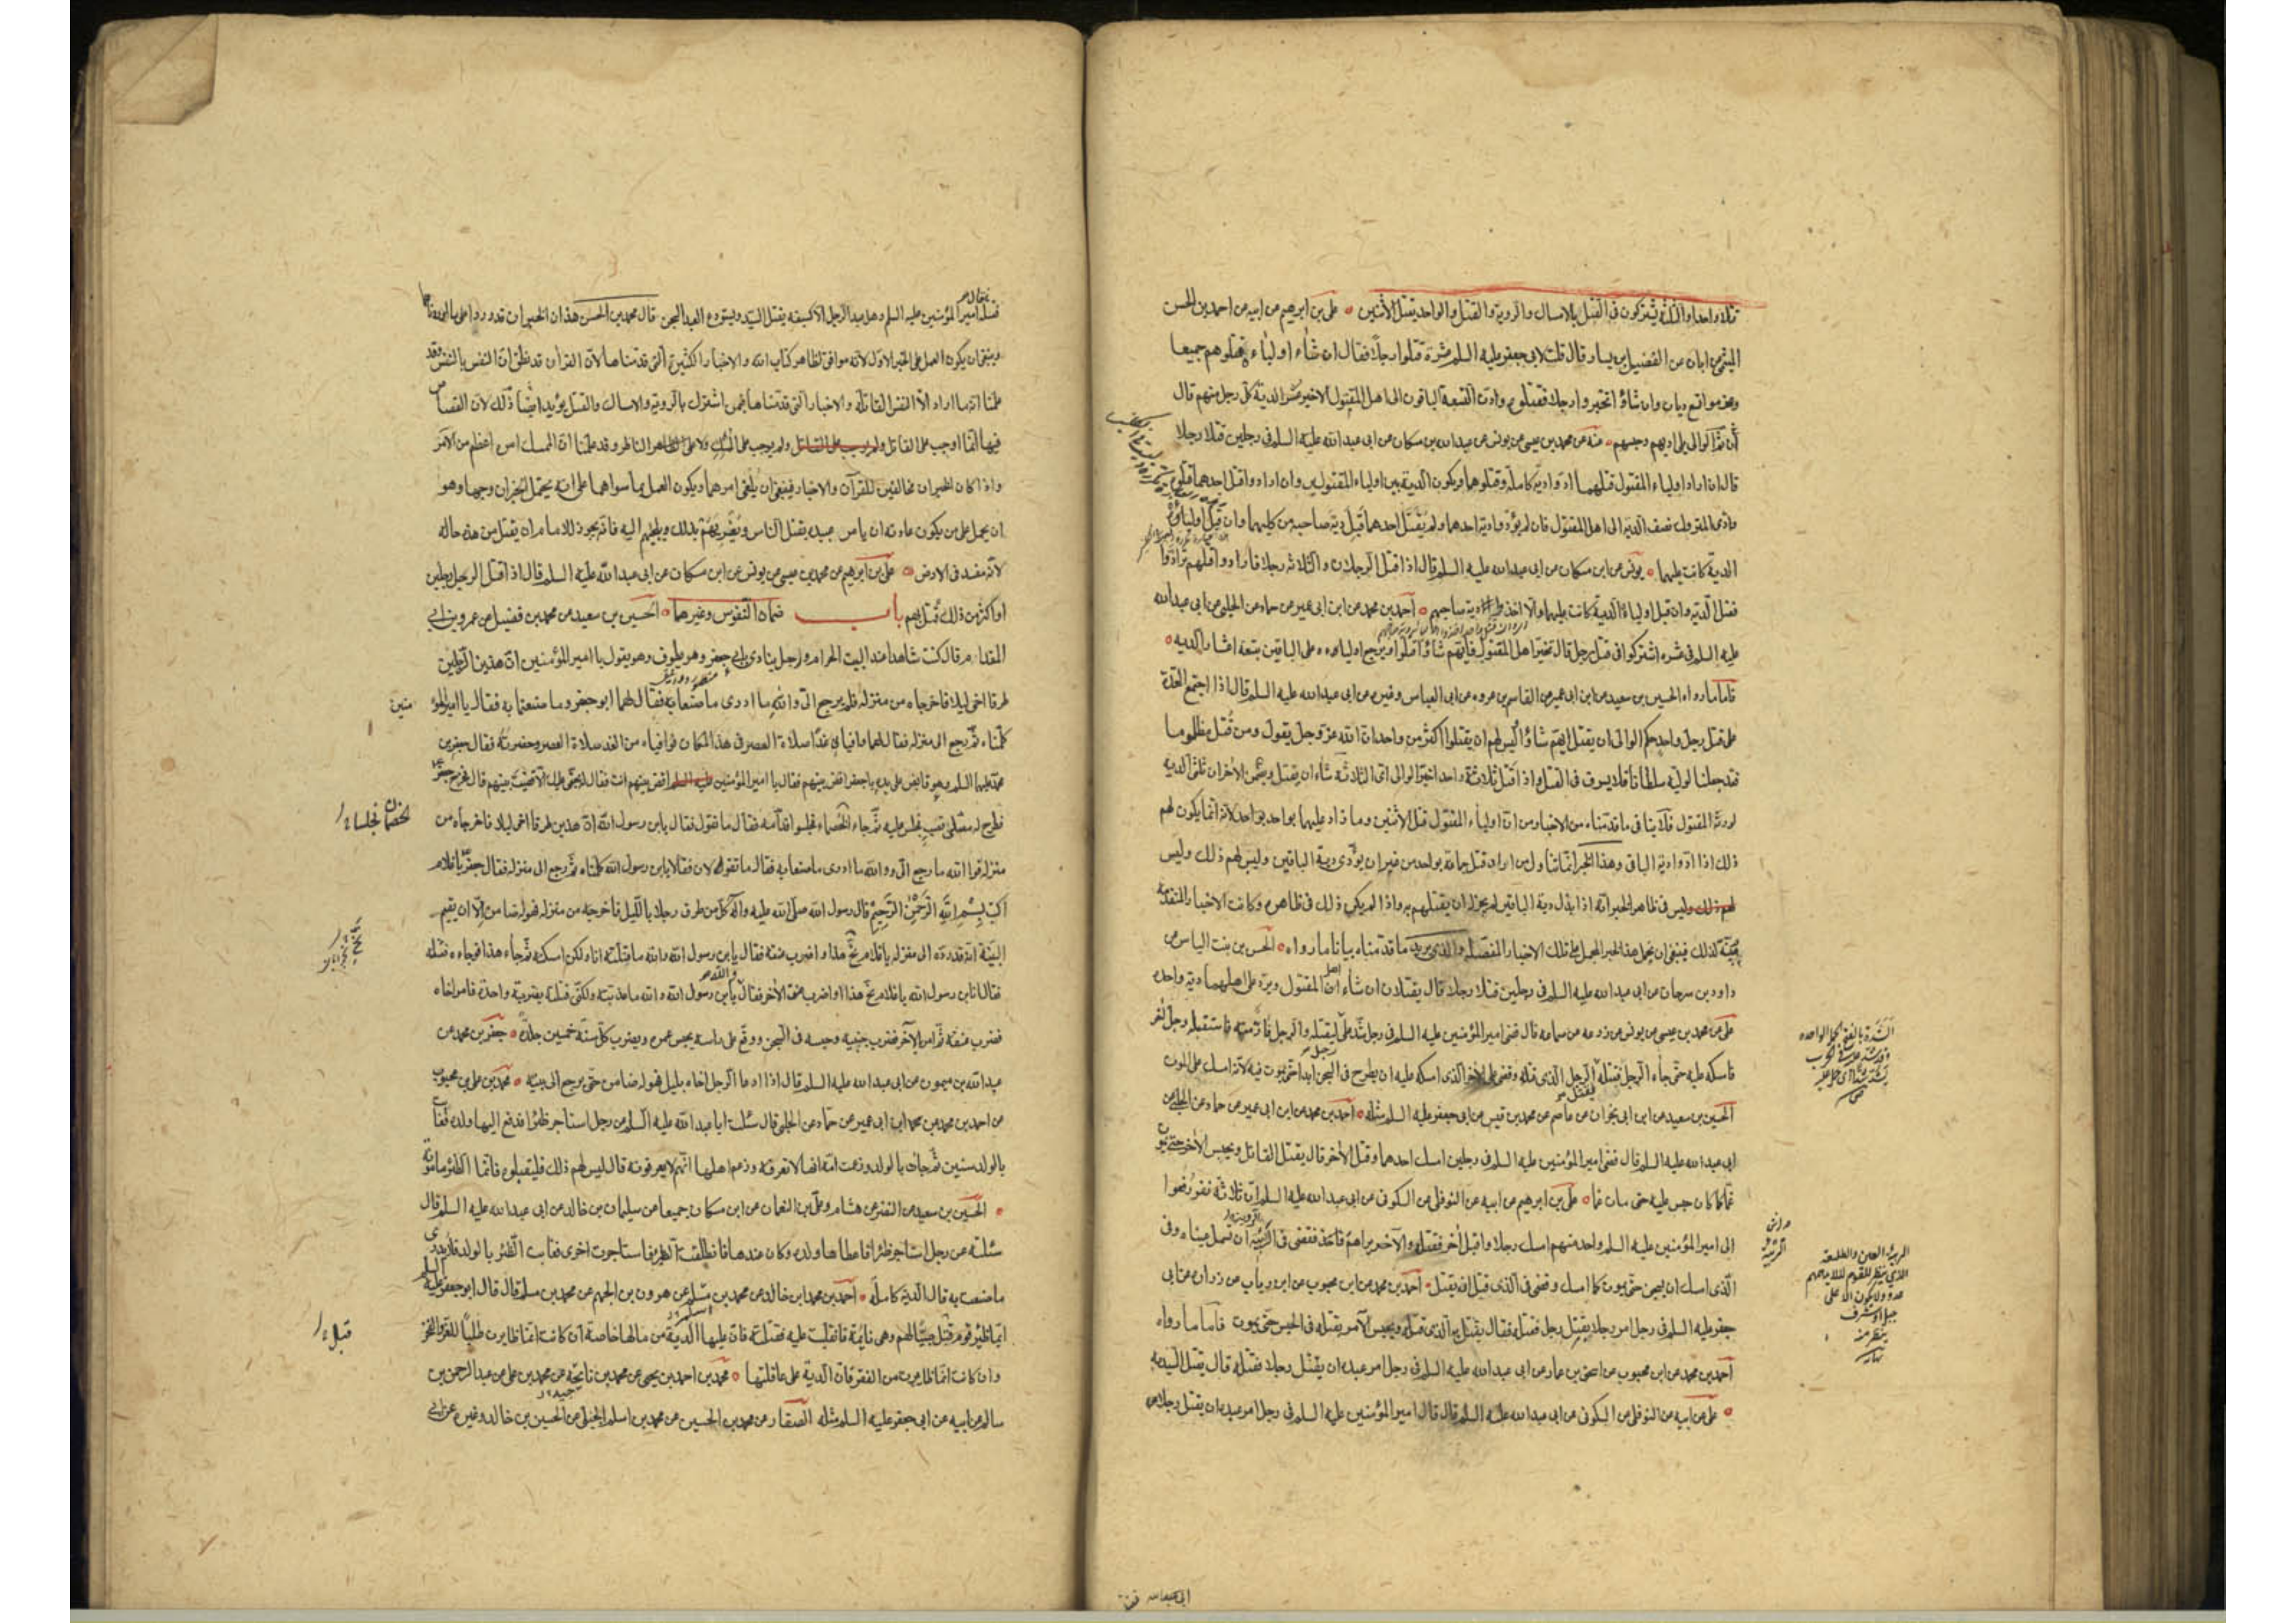 قتلا واحدا والثلثة يشتركون في القتل بالامساك والروية والقتل والواحد يقتل الاثنين علي بن ابرهيم عن ابيه عن احمد بن الحسن
الميثمي عن ابان عن الفضيل بن يسار قال قلت لابي جعفر عليه السلم عشرة قتلوا رجلا فقال ان شاء اولياءه قتلوهم جميعا
وغرموا تسع ديات وان شاؤا تخيروا رجلا فقتلوه وادى التسعة الباقون الى اهل المقتول الاخير عشر الدية كل رجل منهم قال
ثم ان الوالي يلي ادبهم وحبسهم عنه عن محمد بن عيسى عن يونس عن عبد الله بن مسكان عن ابي عبد الله عليه السلم في رجلين قتلا رجلا
قال ان اراد اولياء المقتول قتلهما ادوا دية كاملة وقتلوهما وتكون الدية بين اولياء المقتولين وان ارادوا قتل احدهما قتلوه
وادى المتروك نصف الدية الى اهل المقتول فان لم يؤد دية احدهما ولم يقتل احدهما قبل دية صاحبه من كليهما وان قبل اولياؤه
الدية كانت عليهما يونس عن ابن مسكان عن ابي عبد الله عليه السلم قال اذا قتل الرجلان والثلاثة رجلا فارادوا قتلهم ترادوا
فضل الدية وان قبل اولياؤه الدية كانت عليهما والا اخذوا دية صاحبهم احمد بن محمد عن ابن ابي عمير عن حماد عن الحلبي عن ابي عبد الله
عليه السلم في عشرة اشتركوا في قتل رجل قال تخير اهل المقتول فايهم شاؤا قتلوا ويرجع اولياءه على الباقين بتسعة اعشار الدية
فاما ما رواه الحسين بن سعيد عن ابن ابي عمير عن القاسم بن عروة عن ابي العباس وغيره عن ابي عبد الله عليه السلم قال اذا اجتمع العدة
على قتل رجل واحد حكم الوالي ان يقتل ايهم شاؤا وليس لهم ان يقتلوا اكثر من واحد ان الله عز وجل يقول ومن قتل مظلوما
فقد جعلنا لوليه سلطانا فلا يسرف في القتل واذا قتل ثلاثة واحدا خير الوالي اي الثلاثة شاء ان يقتل ويضمن الاخران ثلثي الدية
لورثة المقتول فلا ينافي ما قدمناه من الاخبار من ان اولياء المقتول قتل الاثنين وما زاد عليهما بواحد لانه انما يكون لهم
ذلك اذا ادوا دية الباقي وهذا الخبر انما تناول من اراد قتل جماعة بواحد من غير ان يؤدي دية الباقين وليس لهم ذلك وليس
لهم ذلك وليس في ظاهر الخبر انه اذا بذل دية الباقين لم يجز له ان يقتلهم به واذا لم يكن ذلك في ظاهره وكانت الاخبار المتقدمة
مبينة لذلك فينبغي ان يحمل هذا الخبر المجمل على تلك الاخبار المفصلة والذي يزيد ما قدمناه بيانا ما رواه الحسن بن بنت الياس عن
داود بن سرحان عن ابي عبد الله عليه السلم في رجلين قتلا رجلا قال يقتلان ان شاء اهل المقتول ويرد على اهلهما دية واحدة
علي عن محمد بن عيسى عن يونس عن زرعة عن سماعة قال قضى امير المؤمنين عليه السلم في رجل شد على رجل ليقتله والرجل فار منه فاستقبله رجل اخر
فامسكه عليه حتى جاء الرجل فقتله فقتل الرجل الذي قتله وقضى على الاخر الذي امسكه عليه ان يطرح في السجن ابدا حتى يموت فيه لانه امسكه على الموت
الحسين بن سعيد عن ابن ابي نجران عن عاصم عن محمد بن قيس عن ابي جعفر عليه السلم مثله احمد بن محمد عن ابن ابي عمير عن حماد عن الحلبي عن
ابي عبد الله عليه السلم قال قضى امير المؤمنين عليه السلم في رجلين امسك احدهما وقتل الاخر قال يقتل القاتل ويحبس الاخر حتى يموت
غما كما كان حبس عليه حتى مات غما علي بن ابرهيم عن ابيه عن النوفلي عن السكوني عن ابي عبد الله عليه السلم ان ثلاثة نفر رفعوا
الى امير المؤمنين عليه السلم واحد منهم امسك رجلا واقبل اخر فقتله والاخر يراهم فقضى في الربيئة ان تسمل عيناه وفي
الذي امسك ان يسجن حتى يموت كما امسك وقضى في الذي قتل ان يقتل احمد بن محمد عن ابن محبوب عن ابن رياب عن زرارة عن ابي
جعفر عليه السلم في رجل امر رجلا بقتل رجل فقتله فقال يقتل به الذي قتله ويحبس الآمر بقتله في الحبس حتى يموت فاما ما رواه
احمد بن محمد عن ابن محبوب عن اسحق بن عمار عن ابي عبد الله عليه السلم في رجل امر عبده ان يقتل رجلا فقتله قال يقتل السيد به
علي عن ابيه عن النوفلي عن السكوني عن ابي عبد الله عليه السلم قال قال امير المؤمنين عليه السلم في رجل امر عبده ان يقتل رجلا
الشدة بالفتح الحملة الواحدة
وقد شد عليه في الحرب
يشد شدا اي حمل عليه
الربيئة العين والطليعة
الذي ينظر للقوم لئلا يدهمهم
عدو ولا يكون الا على
جبل او شرف
ينظر منه
نهاية
فقتله فقال امير المؤمنين عليه السلم وهل عبد الرجل الا كسيفه يقتل السيد ويستودع العبد السجن قال محمد بن الحسن هذان الخبران قد وردا على ما اوردناهما
وينبغي ان يكون العمل على الخبر الاول لانه موافق لظاهر كتاب الله والاخبار الكثيرة التي قدمناها لان القران قد نطق ان النفس بالنفس وقد
علمنا انه ما اراد الا النفس القاتلة والاخبار التي قدمناها فيمن اشترك بالروية والامساك والقتل يؤيد ايضا ذلك لان القصاص
فيها انما اوجب على القاتل ولم يوجب على الممسك ولا على الناظر وقد علمنا ان الممسك امره اعظم من الآمر
واذا كان الخبران مخالفين للقرآن والاخبار فينبغي ان يلغى امرهما ويكون العمل بما سواهما على انه يحتمل الخبران وجها وهو
ان يحمل على من يكون عادته ان يامر عبيده بقتل الناس ويغريهم بذلك ويلجئهم اليه فانه يجوز للامام ان يقتل من هذه حاله
لانه مفسد في الارض علي بن ابرهيم عن محمد بن عيسى عن يونس عن ابن مسكان عن ابي عبد الله عليه السلم قال اذا قتل الرجل رجلين
او اكثر من ذلك قتل بهم باب ضمان النفوس وغيرها الحسين بن سعيد عن محمد بن فضيل عن عمرو بن ابي
المقدام قال كنت شاهدا عند البيت الحرام ورجل ينادي بابي جعفر وهو يطوف وهو يقول يا امير المؤمنين ان هذين الرجلين
طرقا اخي ليلا فاخرجاه من منزله فلم يرجع الي والله ما ادري ما صنعا به فقال لهما ابو جعفر وما صنعتما به فقال يا امير المؤ
منين
كلمناه ثم رجع الى منزله فقال لهما وافياني غدا صلاة العصر في هذا المكان فوافياه من الغد صلاة العصر وحضرته فقال جعفر بن
محمد عليهما السلم وهو قابض على يده يا جعفر اقض بينهم فقال يا امير المؤمنين اقض بينهم انت فقال له بحقي عليك الا قضيت بينهم قال فخرج جعفر
فطرح له مصلى قصب فجلس عليه ثم جاء الخصماء فجلسوا قدامه فقال ما تقول فقال يابن رسول الله ان هذين طرقا اخي ليلا فاخرجاه من
منزله فوالله ما رجع الي ووالله ما ادري ما صنعا به فقال ما تقولان فقالا يابن رسول الله كلمناه ثم رجع الى منزله فقال جعفر يا غلام
اكتب بسم الله الرحمن الرحيم قال رسول الله صلى الله عليه واله كل من طرق رجلا بالليل فاخرجه من منزله فهو له ضامن الا ان يقيم
البينة انه قد رده الى منزله يا غلام نح هذا واضرب عنقه فقال يابن رسول الله والله ما قتلته انا ولكن امسكته ثم جاء هذا فوجاءه فقتله
فقال انا ابن رسول الله يا غلام نح هذا واضرب عنق الاخر فقال يابن رسول الله والله ما عذبته ولكني قتلته بضربة واحدة فامر اخاه
فضرب عنقه ثم امر بالاخر فضرب جنبيه وحبسه في السجن ووقع على راسه يحبس عمره ويضرب كل سنة خمسين جلدة جعفر بن محمد عن
عبد الله بن ميمون عن ابي عبد الله عليه السلم قال اذا ادعا الرجل اخاه بليل فهو له ضامن حتى يرجع الى بيته محمد بن علي بن محبوب
عن احمد بن محمد عن ابن ابي عمير عن حماد عن الحلبي قال سئلت ابا عبد الله عليه السلم عن رجل استاجر ظئرا فدفع اليها ولده فغابت
بالولد سنين ثم جاءت بالولد وزعمت امه انها لا تعرفه وزعم اهلها انهم لا يعرفونه قال ليس لهم ذلك فليقبلوه فانما الظئر مامونة
الحسين بن سعيد عن النضر عن هشام وعلي بن النعمان عن ابن مسكان جميعا عن سليمان بن خالد عن ابي عبد الله عليه السلم قال
سئلته عن رجل استاجر ظئرا فاعطاها ولده وكان عندها فانطلقت الظئر فاستاجرت اخرى فغابت الظئر بالولد فلا يدرى
ما صنعت به قال الدية كاملة احمد بن محمد بن خالد عن محمد بن اسلم عن هرون بن الجهم عن محمد بن مسلم قال قال ابو جعفر عليه السلم
ايما ظئر قوم قتلت صبيا لهم وهي نايمة فانقلبت عليه فقتلته فان عليها الدية من مالها خاصة ان كانت انما ظايرت طلبا للعز والفخر
وان كانت انما ظايرت من الفقر فان الدية على عاقلتها محمد بن احمد بن يحيى عن محمد بن ناجية عن محمد بن علي عن عبد الرحمن بن
سالم عن ابيه عن ابي جعفر عليه السلم مثله الصفار عن محمد بن الحسين عن محمد بن اسلم الجبلي عن الحسين بن خالد وغيره عن ابي